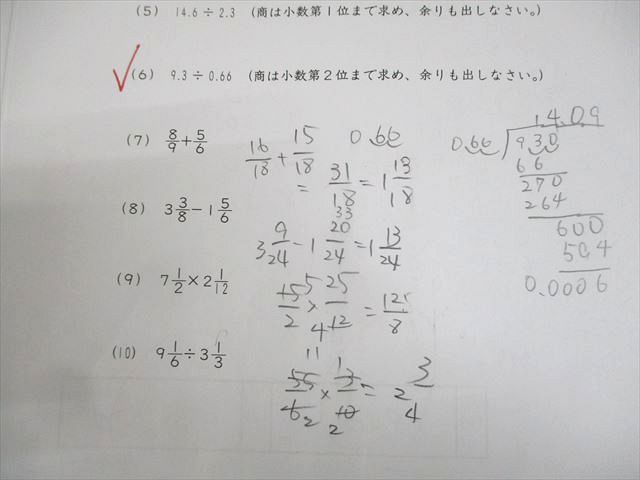 (5) 14.6÷2.3 (商は小数第1位まで求め、余りも出しなさい。)
(6) 9.3÷0.66 (商は小数第2位まで求め、余りも出しなさい。)
(7) 8/9+5/6
16/18+15/18
=31/18=1 13/18
(8) 3 3/8-1 5/6
3 9/24-1 20/24=1 13/24
33
(9) 7 1/2×2 1/12
15/2×25/12=125/8
5
4
(10) 9 1/6÷3 1/3
55/6×3/10=2 3/4
11
1
2
2
0.66
14.09
0.66)930
66
270
264
600
594
0.0006